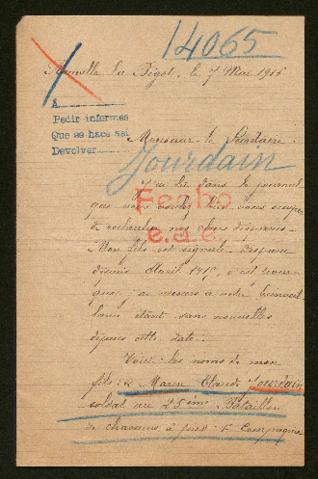 14065
Neuville la Bigot, le 7 Mai 1916
A
Pedir informes
Que se hace así
Devolver
Monsieur le Secrétaire:
Jourdain
J'ai lu dans le journal
que vous bien vous occuper
de rechercher nos chers disparus.
Fecho
e.a.e.
Mon fils est signalé disparu
depuis Avril 1915, c'est pour
quoi j'ai recours à votre bienveil
lance étant sans nouvelles
depuis cette date.
Voici les noms de mon
fils: Claude Jourdain
soldat au 25ème Bataillon
de chasseurs à pied Compagnie